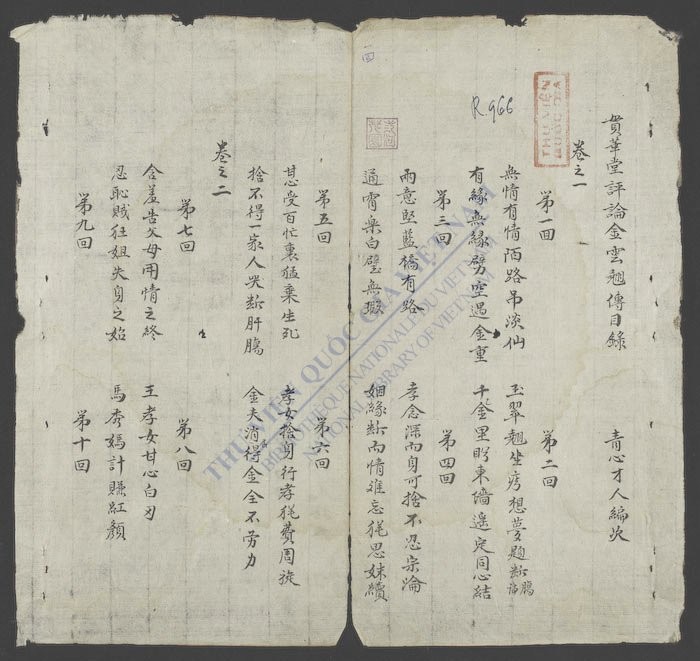 貫華堂評論金雲翹傳目錄　青心才人編次
卷之一
第一回
無情有情陌路吊淡仙
有緣無緣劈空遇金重
第二回
王翠翹坐痴想夢題斷腸詩
千金里盻東墻遥定同心結
第三回
兩意堅藍橋有路
通宵樂白璧無瑕
第四回
孝念深而身可捨不忍宗淪
姻緣斷而情难忘猶思妹續
第五回
甚受百忙裏猛棄生死
捨不得一家人哭断肝腸
第六回
孝女捨身行孝猶費周旋
金夫消得金全不劳力
卷之二
第七回
含羞告父母用情之終
忍恥賊狂姐失身之始
第八回
王孝女甘心白刃
馬秀媽計賺紅顏
第九回
第十回
R.966
THƯ VIỆN
QUỐC GIA
THƯ VIỆN QUỐC GIA VIỆT NAM
BIBLIOTHEQUE NATIONALE DU VIETNAM
NATIONAL LIBRARY OF VIETNAM